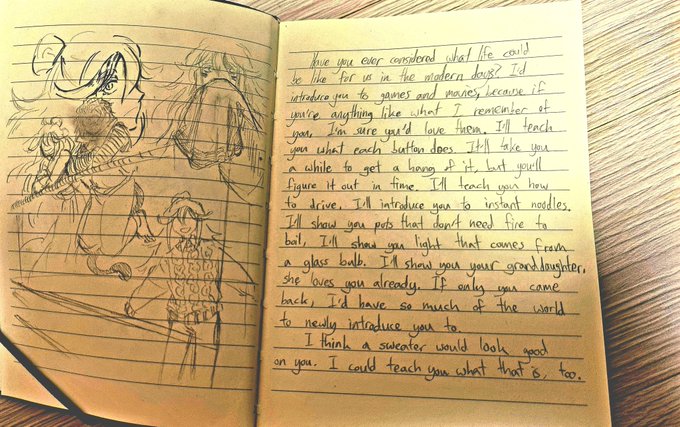 Have you ever considered what life could
be like for us in the modern days? I'd
introduce you to games and movies, because if
you're anything like what I remember of
you, I'm sure you'd love them. I'll teach
you what each button does. It'll take you
a while to get a hang of it, but you'll
figure it out in time. I'll teach you how
to drive. I'll introduce you to instant noodles.
I'll show you pots that don't need fire to
boil, I'll show you light that comes from
a glass bulb. I'll show you your granddaughter,
she loves you already. If only you came
back, I'd have so much of the world
to newly introduce you to.
I think a sweater would look good
on you. I could teach you what that is, too.